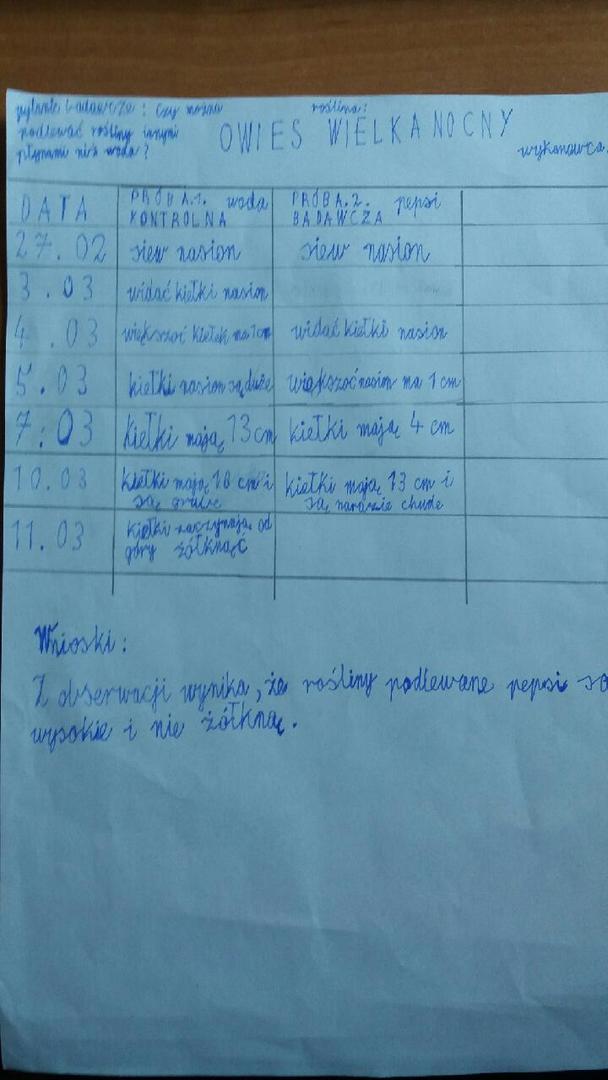 pytanie badawcze: czy można
podlewać rośliny innymi
płynami niż woda?
roślina:
OWIES WIELKANOCNY
wykonawca
DATA
PRÓBA.1. woda
KONTROLNA
PRÓBA.2. pepsi
BADAWCZA
27.02
siew nasion
siew nasion
3.03
widać kiełki nasion
4.03
większość kiełek ma 1cm
widać kiełki nasion
5.03
kiełki nasion są duże
większoć nasion ma 1 cm
7.03
kiełki mają 13 cm
kiełki mają 4 cm
10.03
kiełki mają 18 cm i
są grube
kiełki mają 13 cm i
są narazie chude
11.03
kiełki zaczynają od
góry żółknąć
Wnioski:
Z obserwacji wynika, że rośliny podlewane pepsi są
wysokie i nie żółkną.